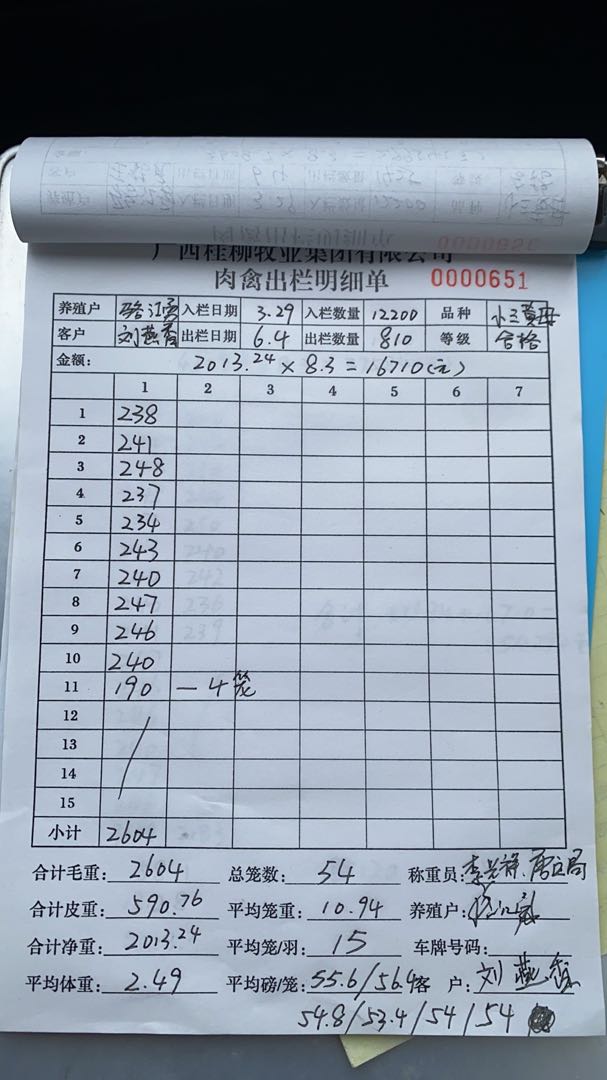 广西桂柳牧业集团有限公司
肉禽出栏明细单 0000651
养殖户 入栏日期 3.29 入栏数量 12200 品种 小三黄母
客户 刘燕香 出栏日期 6.4 出栏数量 810 等级 合格
金额: 2013.24 × 8.3 = 16710(元)
1 2 3 4 5 6 7
1 238
2 241
3 248
4 237
5 234
6 243
7 240
8 247
9 246
10 240
11 190 — 4笼
12
13
14
15
小计 2604
合计毛重: 2604 总笼数: 54 称重员:
合计皮重: 590.76 平均笼重: 10.94 养殖户:
合计净重: 2013.24 平均笼/羽: 15 车牌号码:
平均体重: 2.49 平均磅/笼: 55.6/56.4 客户: 刘燕香
54.8/53.4/54/54